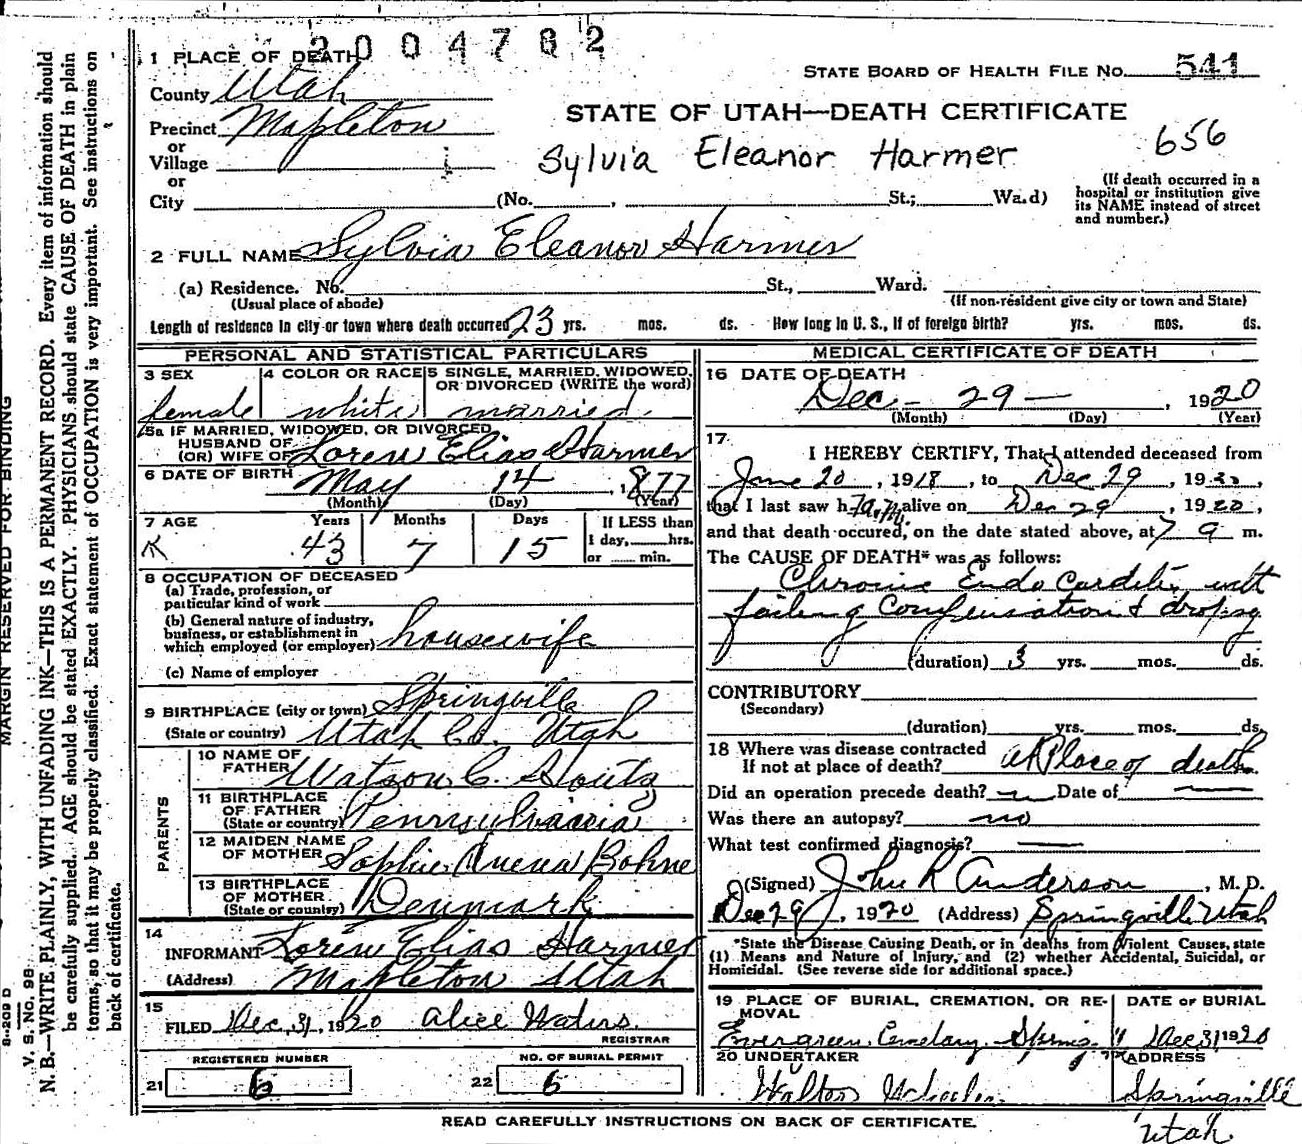 2004762
1 PLACE OF DEATH
STATE BOARD OF HEALTH FILE NO. 541
County Utah
STATE OF UTAH—DEATH CERTIFICATE
Precinct Mapleton
656
or
Village
Sylvia Eleanor Harmer
or
City (No. , St.; Ward)
(If death occurred in a
hospital or institution give
its NAME instead of street
and number.)
2 FULL NAME Sylvia Eleanor Harmer
(a) Residence. No. St., Ward.
(Usual place of abode) (If non-resident give city or town and State)
Length of residence in city or town where death occurred 23 yrs. mos. ds. How long in U. S., if of foreign birth? yrs. mos. ds.
PERSONAL AND STATISTICAL PARTICULARS
3 SEX 4 COLOR OR RACE 5 SINGLE, MARRIED, WIDOWED,
OR DIVORCED (WRITE the word)
female white married
5a IF MARRIED, WIDOWED, OR DIVORCED
HUSBAND OF
(OR) WIFE OF Loren Elias Harmer
6 DATE OF BIRTH May 14, 1877
(Month) (Day) (Year)
7 AGE Years Months Days If LESS than
K 43 7 15 1 day, hrs.
or min.
8 OCCUPATION OF DECEASED
(a) Trade, profession, or
particular kind of work
(b) General nature of industry,
business, or establishment in
which employed (or employer) housewife
(c) Name of employer
9 BIRTHPLACE (city or town) Springville
(State or country) Utah Co. Utah
PARENTS
10 NAME OF
FATHER Watson C. Houtz
11 BIRTHPLACE
OF FATHER
(State or country) Pennsylvania
12 MAIDEN NAME
OF MOTHER Sophie Bohne
13 BIRTHPLACE
OF MOTHER
(State or country) Denmark
14
INFORMANT Loren Elias Harmer
(Address) Mapleton Utah
15
FILED Dec, 31, 1920 Alice Waters.
REGISTRAR
REGISTERED NUMBER NO. OF BURIAL PERMIT
21 6 22 6
MEDICAL CERTIFICATE OF DEATH
16 DATE OF DEATH
Dec - 29 -, 1920
(Month) (Day) (Year)
17
I HEREBY CERTIFY, That I attended deceased from
June 20, 1918, to Dec 29, 1920,
that I last saw h alive on Dec 29, 1920,
and that death occured, on the date stated above, at 7 a m.
The CAUSE OF DEATH* was as follows:
Chronic Endo Carditis with
failing Compensation & dropsy
(duration) 3 yrs. mos. ds.
CONTRIBUTORY
(Secondary)
(duration) yrs. mos. ds.
18 Where was disease contracted
If not at place of death? at Place of death
Did an operation precede death? Date of
Was there an autopsy? no
What test confirmed diagnosis?
(Signed) John R Anderson, M. D.
Dec 29, 1920 (Address) Springville Utah
*State the Disease Causing Death, or in deaths from Violent Causes, state
(1) Means and Nature of Injury, and (2) whether Accidental, Suicidal, or
Homicidal. (See reverse side for additional space.)
19 PLACE OF BURIAL, CREMATION, OR RE-
MOVAL
DATE OF BURIAL
Evergreen Cemetary. Spring Dec 31 1920
20 UNDERTAKER ADDRESS
Walton Wheeler Springville
Utah.
READ CAREFULLY INSTRUCTIONS ON BACK OF CERTIFICATE.
MARGIN RESERVED FOR BINDING
V. S. No. 98
N. B.—WRITE PLAINLY, WITH UNFADING INK—THIS IS A PERMANENT RECORD. Every item of information should
be carefully supplied. AGE should be stated EXACTLY. PHYSICIANS should state CAUSE OF DEATH in plain
terms, so that it may be properly classified. Exact statement of OCCUPATION is very important. See instructions on
back of certificate.